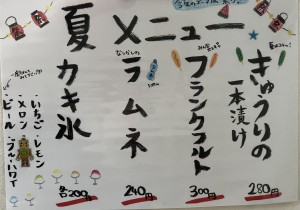 夏メニュー
きゅうりの
一本漬け
280円
フランクフルト
300円
なつかしの
ラムネ
240円
カキ氷
いちご・レモン
・メロン
・ビール・ブルーハワイ
各200円